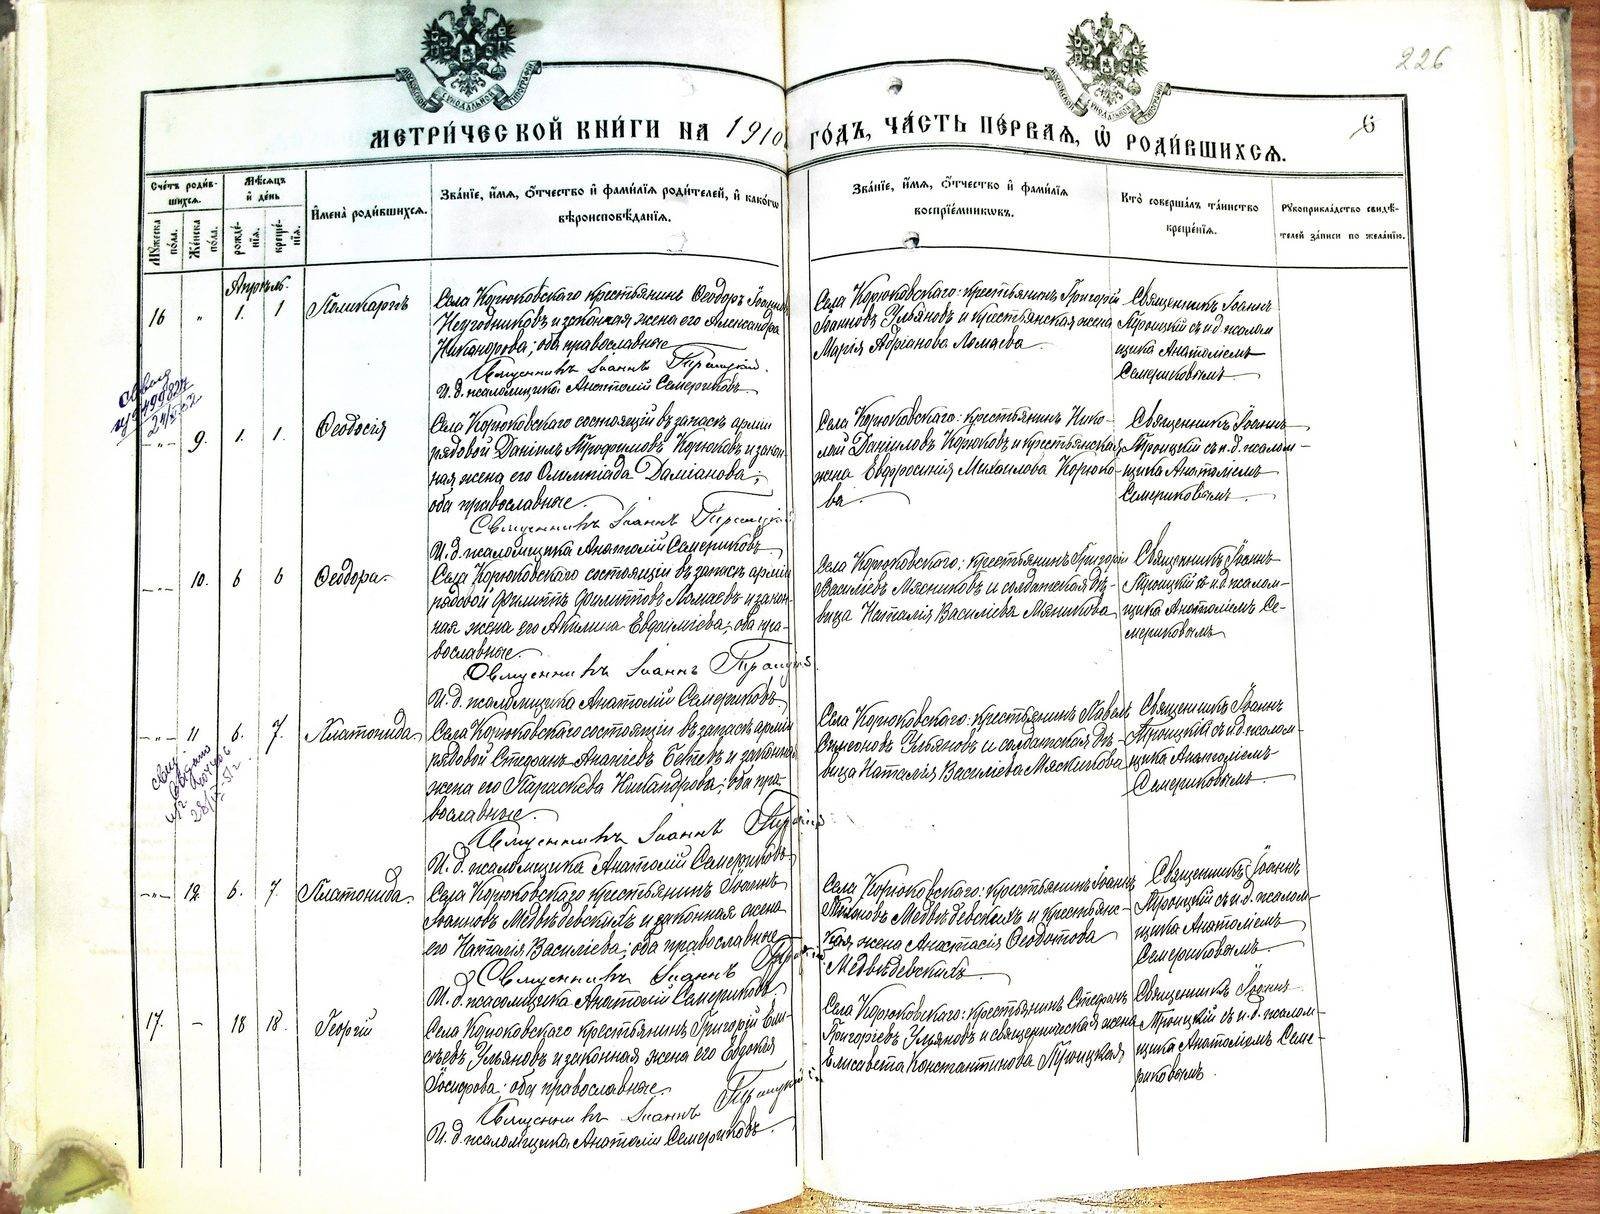 226
МЕТРИ́ЧЕСКОЙ КНИ́ГИ НА 1910 ГО́ДЪ, ЧА́СТЬ ПЕ́РВАЯ, Ѽ РОДИ́ВШИХСЯ.
6
Сче́тъ роди́в-
шихся.
Мꙋжеска по́ла.
Же́нска по́ла.
Мѣ́сяцъ и де́нь
рожде́-
нїя.
креще́-
нїя.
Имена̀ роди́вшихся.
Зва́нїе, и́мя, ѻ́тчество и фами́лїя роди́телей, и како́гѡ
вѣроисповѣ́данїя.
Зва́нїе, и́мя, ѻ́тчество и фами́лїя
воспрїе́мникѡвъ.
Кто̀ соверша́лъ та́инство
креще́нїя.
Рꙋкоприкла́дство свидѣ́-
телей за́писи по жела́нїю.
Апрѣль.
16 „ 1. 1 Поликарпъ
Села Корюковскаго крестьянинъ Ѳеодоръ Іоанновъ
Неугодниковъ и законная жена его Александра
Никанорова; оба православные
Священникъ Іоаннъ Троицкій.
И. д. псаломщика Анатолій Семериковъ.
Села Корюковскаго: крестьянинъ Григорій
Іоанновъ Ульяновъ и крестьянская жена
Марія Адріанова Ломаева
Священникъ Іоаннъ
Троицкій съ и.д. псалом
щика Анатоліемъ
Семериковымъ
„ 9. 1. 1. Ѳеодосія
Села Корюковскаго состоящій въ запасѣ арміи
рядовой Даніилъ Трофимовъ Корюковъ и закон
ная жена его Олимпіада Даміанова;
оба православные.
Священникъ Іоаннъ Троицкій
И. д. псаломщика Анатолій Семериковъ
Села Корюковскаго: крестьянинъ Нико-
лай Даніиловъ Корюковъ и крестьянская
жена Евфросинія Михаилова Корюко-
ва
Священникъ Іоаннъ
Троицкій съ и. д. псалом-
щика Анатоліемъ
Семериковымъ
„ 10. 6 6 Ѳеодора
Села Корюковскаго состоящій въ запасѣ арміи
рядовой Филиппъ Филипповъ Ломаевъ и закон-
ная жена его Акилина Евдокиміева; оба пра-
вославные.
Священникъ Іоаннъ Троицкій
И. д. псаломщика Анатолій Семериковъ
Села Корюковскаго: крестьянинъ Григорій
Василіевъ Мясниковъ и солдатская дѣ-
вица Наталія Василіева Мясникова
Священникъ Іоаннъ
Троицкій съ и.д. псалом-
щика Анатоліемъ Се-
мериковымъ
„ 11 6. 7. Платонида
Села Корюковскаго состоящій въ запасѣ арміи
рядовой Стефанъ Ананіевъ Бетевъ и законная
жена его Параскева Никандрова; оба пра-
вославные
Священникъ Іоаннъ Троицкій
И. д. псаломщика Анатолій Семериковъ
Села Корюковскаго: крестьянинъ Павелъ
Симеоновъ Ульяновъ и солдатская дѣ-
вица Наталія Василіева Мясникова
Священникъ Іоаннъ
Троицкій съ и.д. псалом-
щика Анатоліемъ
Семериковымъ
„ 12. 6. 7. Платонида
Села Корюковскаго крестьянинъ Іоаннъ
Іоанновъ Медвѣдевскихъ и законная жена
его Наталія Василіева; оба православные
Священникъ Іоаннъ Троицкій
И. д. псаломщика Анатолій Семериковъ
Села Корюковскаго: крестьянинъ Іоаннъ
Медвѣдевскихъ и крестьянс-
кая жена Анастасія Ѳеодотова
Медвѣдевскихъ
Священникъ Іоаннъ
Троицкій съ и.д. псалом-
щика Анатоліемъ
Семериковымъ
17. – 18 18. Георгій
Села Корюковскаго крестьянинъ Григорій Ели-
сѣевъ Ульяновъ и законная жена его Евдокія
Іосифова; оба православные.
Священникъ Іоаннъ Троицкій
И. д. псаломщика Анатолій Семериковъ.
Села Корюковскаго: крестьянинъ Стефанъ
Григоріевъ Ульяновъ и священническая жена
Елисавета Константинова Троицкая
Священникъ Іоаннъ
Троицкій съ и. д. псалом-
щика Анатоліемъ Семе-
риковымъ